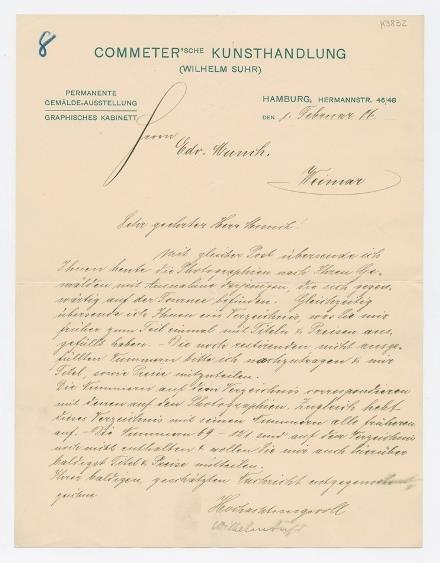 8
K3832
COMMETER'SCHE KUNSTHANDLUNG
(WILHELM SUHR)
PERMANENTE
GEMÄLDE-AUSSTELLUNG
GRAPHISCHES KABINETT
HAMBURG, HERMANNSTR. 46/48
DEN 1. Februar 06.
Herrn
Edv. Munch.
Weimar
Sehr geehrter Herr Munch!
Mit gleicher Post übersende ich
Ihnen heute die Photographien nach Ihren Ge-
mälden mit Ausnahme derjenigen, die sich gegen-
wärtig auf der Tournee befinden. Gleichzeitig
übersende ich Ihnen ein Verzeichnis, was Sie mir
früher zum Teil einmal mit Titeln & Preisen aus-
gefüllt haben. - Die noch restirenden nicht ausge-
füllten Nummern bitte ich nachzutragen & mir
Titel, sowie Preise mitzuteilen.
Die Nummern auf dem Verzeichnis correspondieren
mit denen auf den Photographien. Zugleich hebt
dieses Verzeichnis mit seinen Nummern alle früheren
auf. - Die Nummern 69 - 121 sind auf dem Verzeichnis
noch nicht enthalten & wollen Sie mir auch hierüber
baldigst Titel & Preise mitteilen.
Ihrer baldigen, geschätzten Nachricht entgegensehend
zeichne
Hochachtungsvoll
Wilhelm Suhr